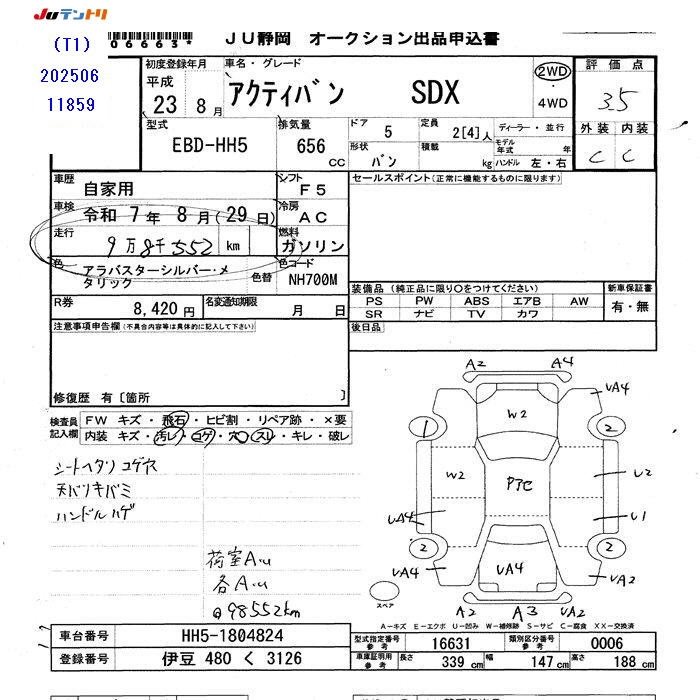 JUテントリ
(T1)
202506
11859
06663*
JU静岡 オークション出品申込書
初度登録年月
平成
23 8月
車名・グレード
アクティバン SDX
2WD
・
4WD
評価点
3.5
型式
EBD-HH5
排気量
656 CC
ドア 5
定員 2[4]人
形状 バン
積載 kg
ディーラー・並行
モデル年式 年
ハンドル 左・右
外装 内装
C C
車歴
自家用
シフト
F5
セールスポイント(正常に機能するものに限ります)
車検
令和 7年 8月(29日)
冷房
AC
走行
9万8千552 km
燃料
ガソリン
色
アラバスターシルバー・メタリック
色替
色コード
NH700M
装備品(純正品に限り〇をつけてください)
新車保証書
PS PW ABS エアB AW
SR ナビ TV カワ
有・無
R券
8,420円
名変通知期限
月 日
後日品
注意事項申告欄(不具合内容等は具体的に記入して下さい)
修復歴 有〔箇所 〕
検査員記入欄
FW キズ・飛石・ヒビ割・リペア跡・×要
内装 キズ・汚レ・コゲ・穴・スレ・キレ・破レ
シートヘタリ コゲ穴
天バリキバミ
ハンドルハゲ
荷室A.u
各A.u
98552km
A2 A4
UA4
W2
1 2
W2 PアC U2
UA4 U1
2 2
UA4 UA4 UA2
A2 A3 UA2
スペア
A-キズ E-エクボ U-凹み W-補修跡 S-サビ C-腐食 XX-交換済
車台番号 HH5-1804824
登録番号 伊豆 480 く 3126
型式指定番号 参考 16631
類別区分番号 参考 0006
車庫証明用 参考
長さ 339 cm 幅 147 cm 高さ 188 cm